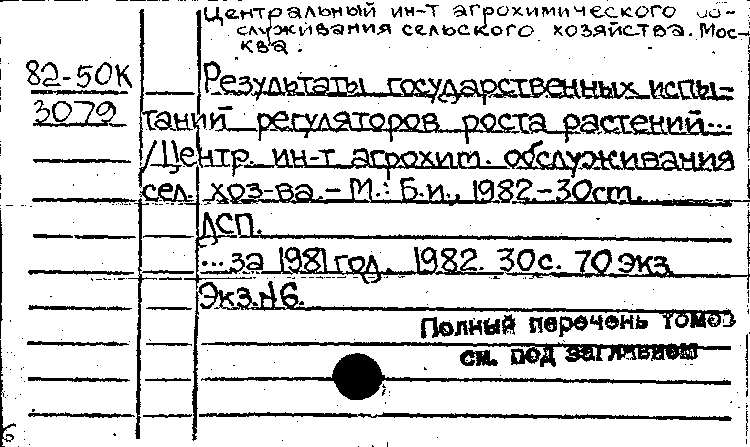 Центральный ин-т агрохимического об-
служивания сельского хозяйства. Мос-
ква.
82-50К Результаты государственных испы-
3079 таний регуляторов роста растений...
/Центр. ин-т агрохим. обслуживания
сел. хоз-ва. – М.: Б.и., 1982 – 30см.
ДСП.
...за 1981 год. 1982. 30с. 70 экз
Экз.№6.
Полный перечень томов
см. под заглавием
6